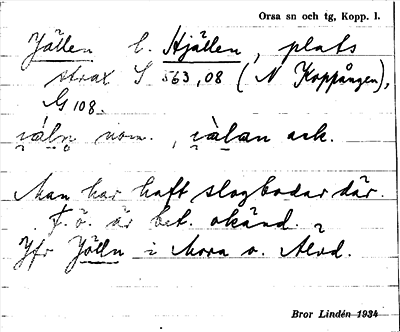 Orsa sn och tg, Kopp. l.
Jällen l. Hjällen, plats
strax S 563,08 (N Koppången),
G 108.
i̯áln̥ nom., i̯àlan ack.
Man har haft slogbodar där.
F. ö. är bet. okänd.
Jfr Jälln i Mora o. Älvd.
Bror Lindén 1934